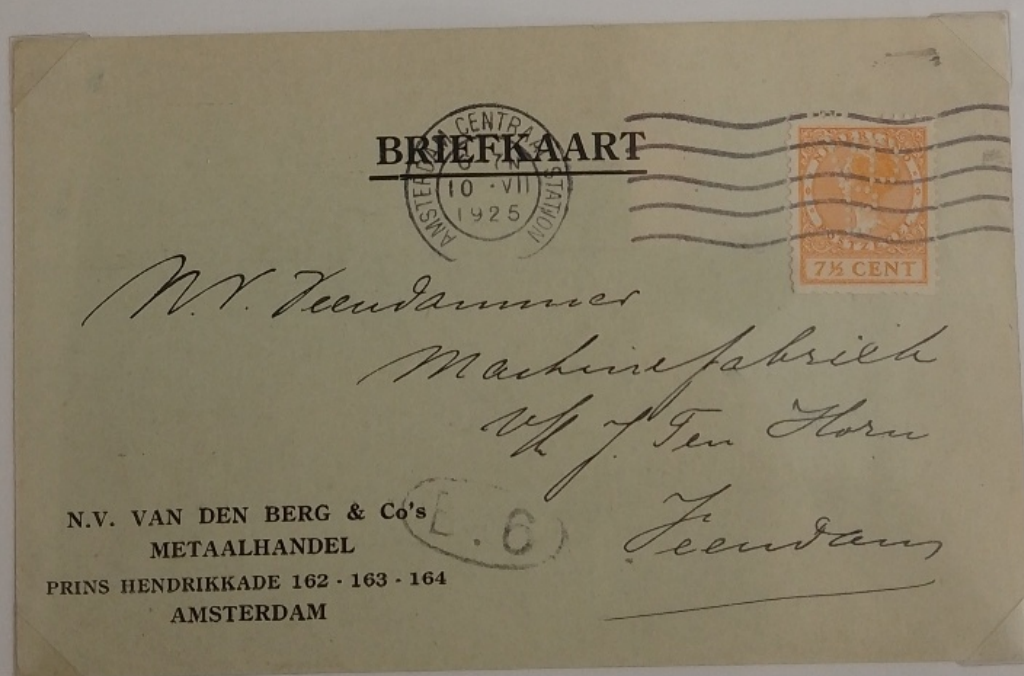 BRIEFKAART
AMSTERDAM CENTRAAL STATION
10 · VII
1925
7½ CENT
N.V. Veendammer
Machinefabriek
v/h J. Ten Horn
Veendam
E. 6
N.V. VAN DEN BERG & Co's
METAALHANDEL
PRINS HENDRIKKADE 162 - 163 - 164
AMSTERDAM